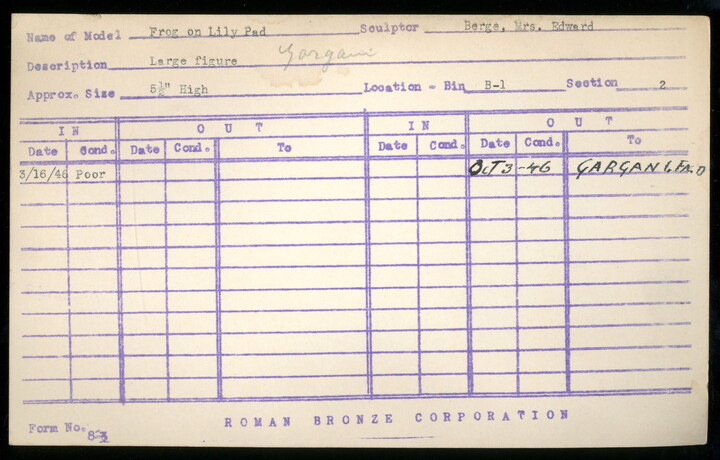 Name of Model Frog on Lily Pad Sculptor Berge, Mrs. Edward
Description Large figure Gargani
Approx. Size 5½" High Location - Bin B-1 Section 2
IN OUT IN OUT
Date Cond. Date Cond. To Date Cond. Date Cond. To
3/16/46 Poor OCT 3-46 GARGANI
ROMAN BRONZE CORPORATION
Form No.